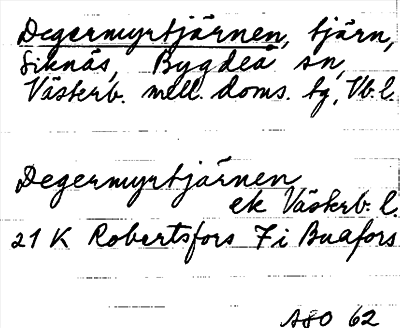 Degermyrtjärnen, tjärn,
Siknäs, Bygdeå sn,
Västerb. mell. doms. tg, Vb.l.
Degermyrtjärnen
ek Västerb. l.
21 K Robertsfors 7 i Buafors
ASO 62